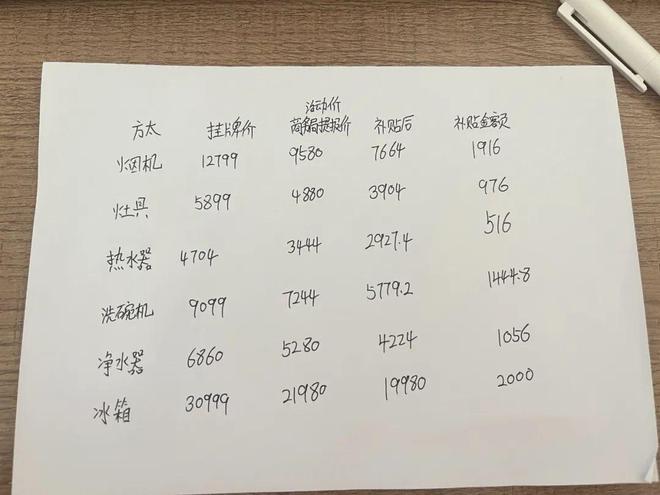 活动价
方太 挂牌价 商务局提报价 补贴后 补贴金额
烟机 12799 9580 7664 1916
灶具 5899 4880 3904 976
热水器 4704 3444 2927.4 516
洗碗机 9099 7244 5779.2 1444.8
净水器 6860 5280 4224 1056
冰箱 30999 21980 19980 2000